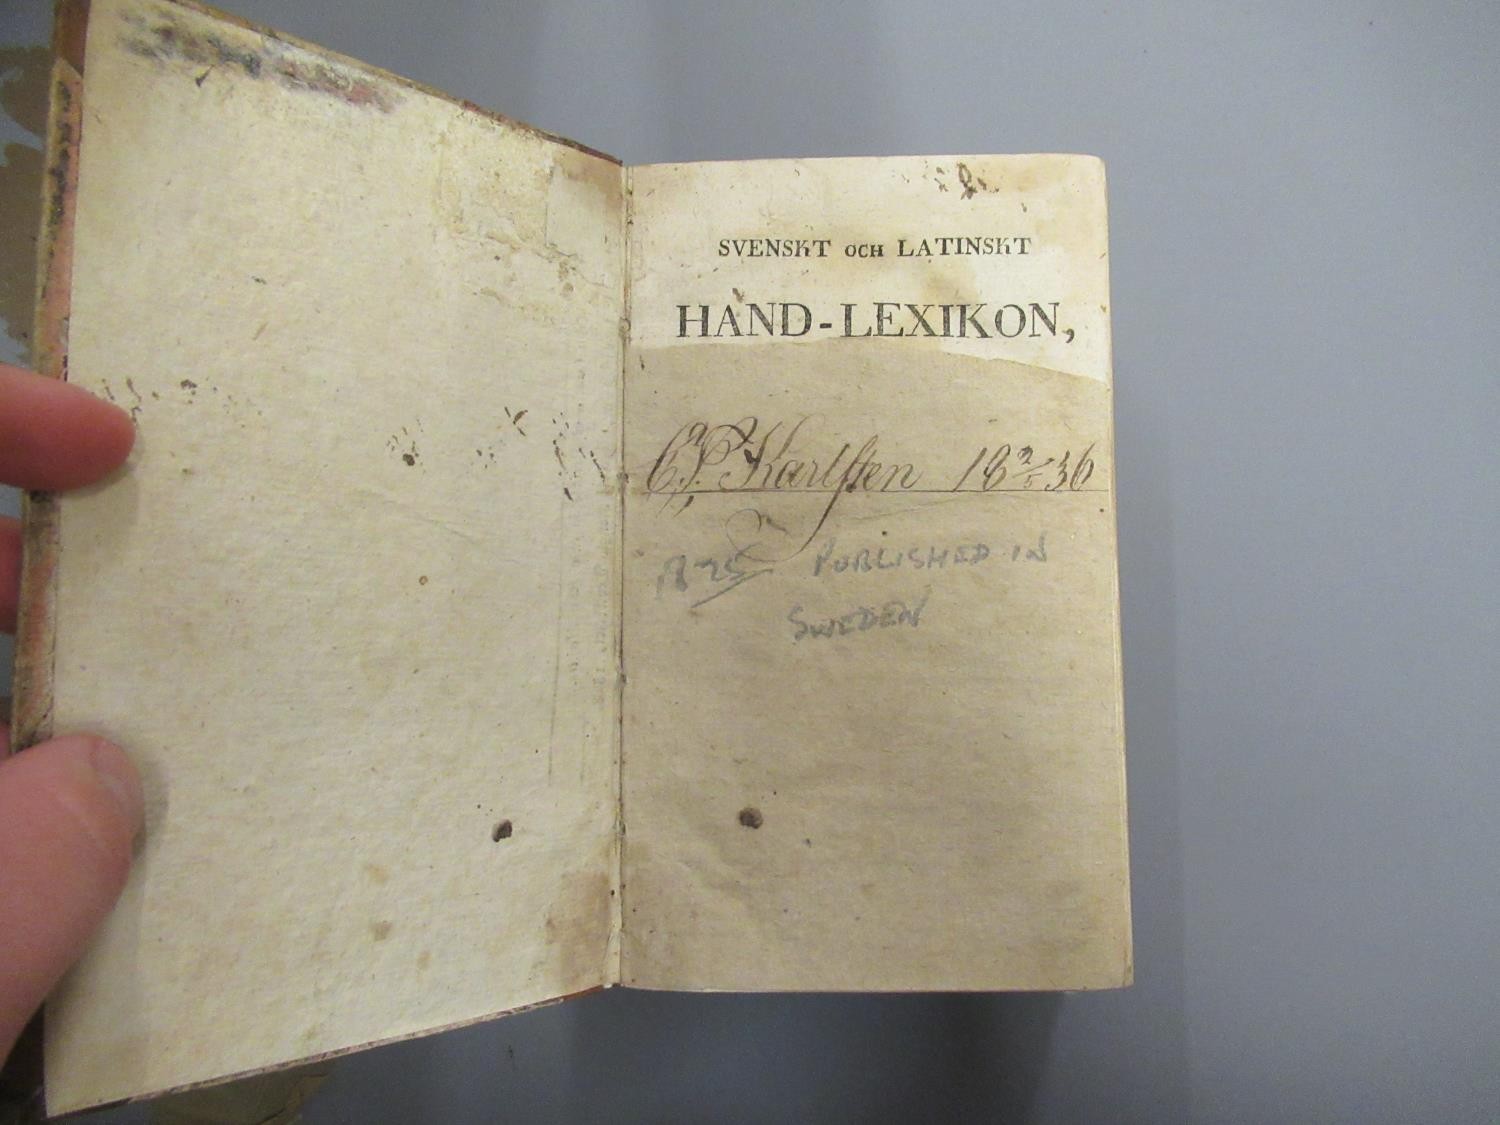 SVENSKT OCH LATINSKT
HAND-LEXIKON,
C. P. Karlsten 18 2/5 36
1825 PUBLISHED IN
SWEDEN